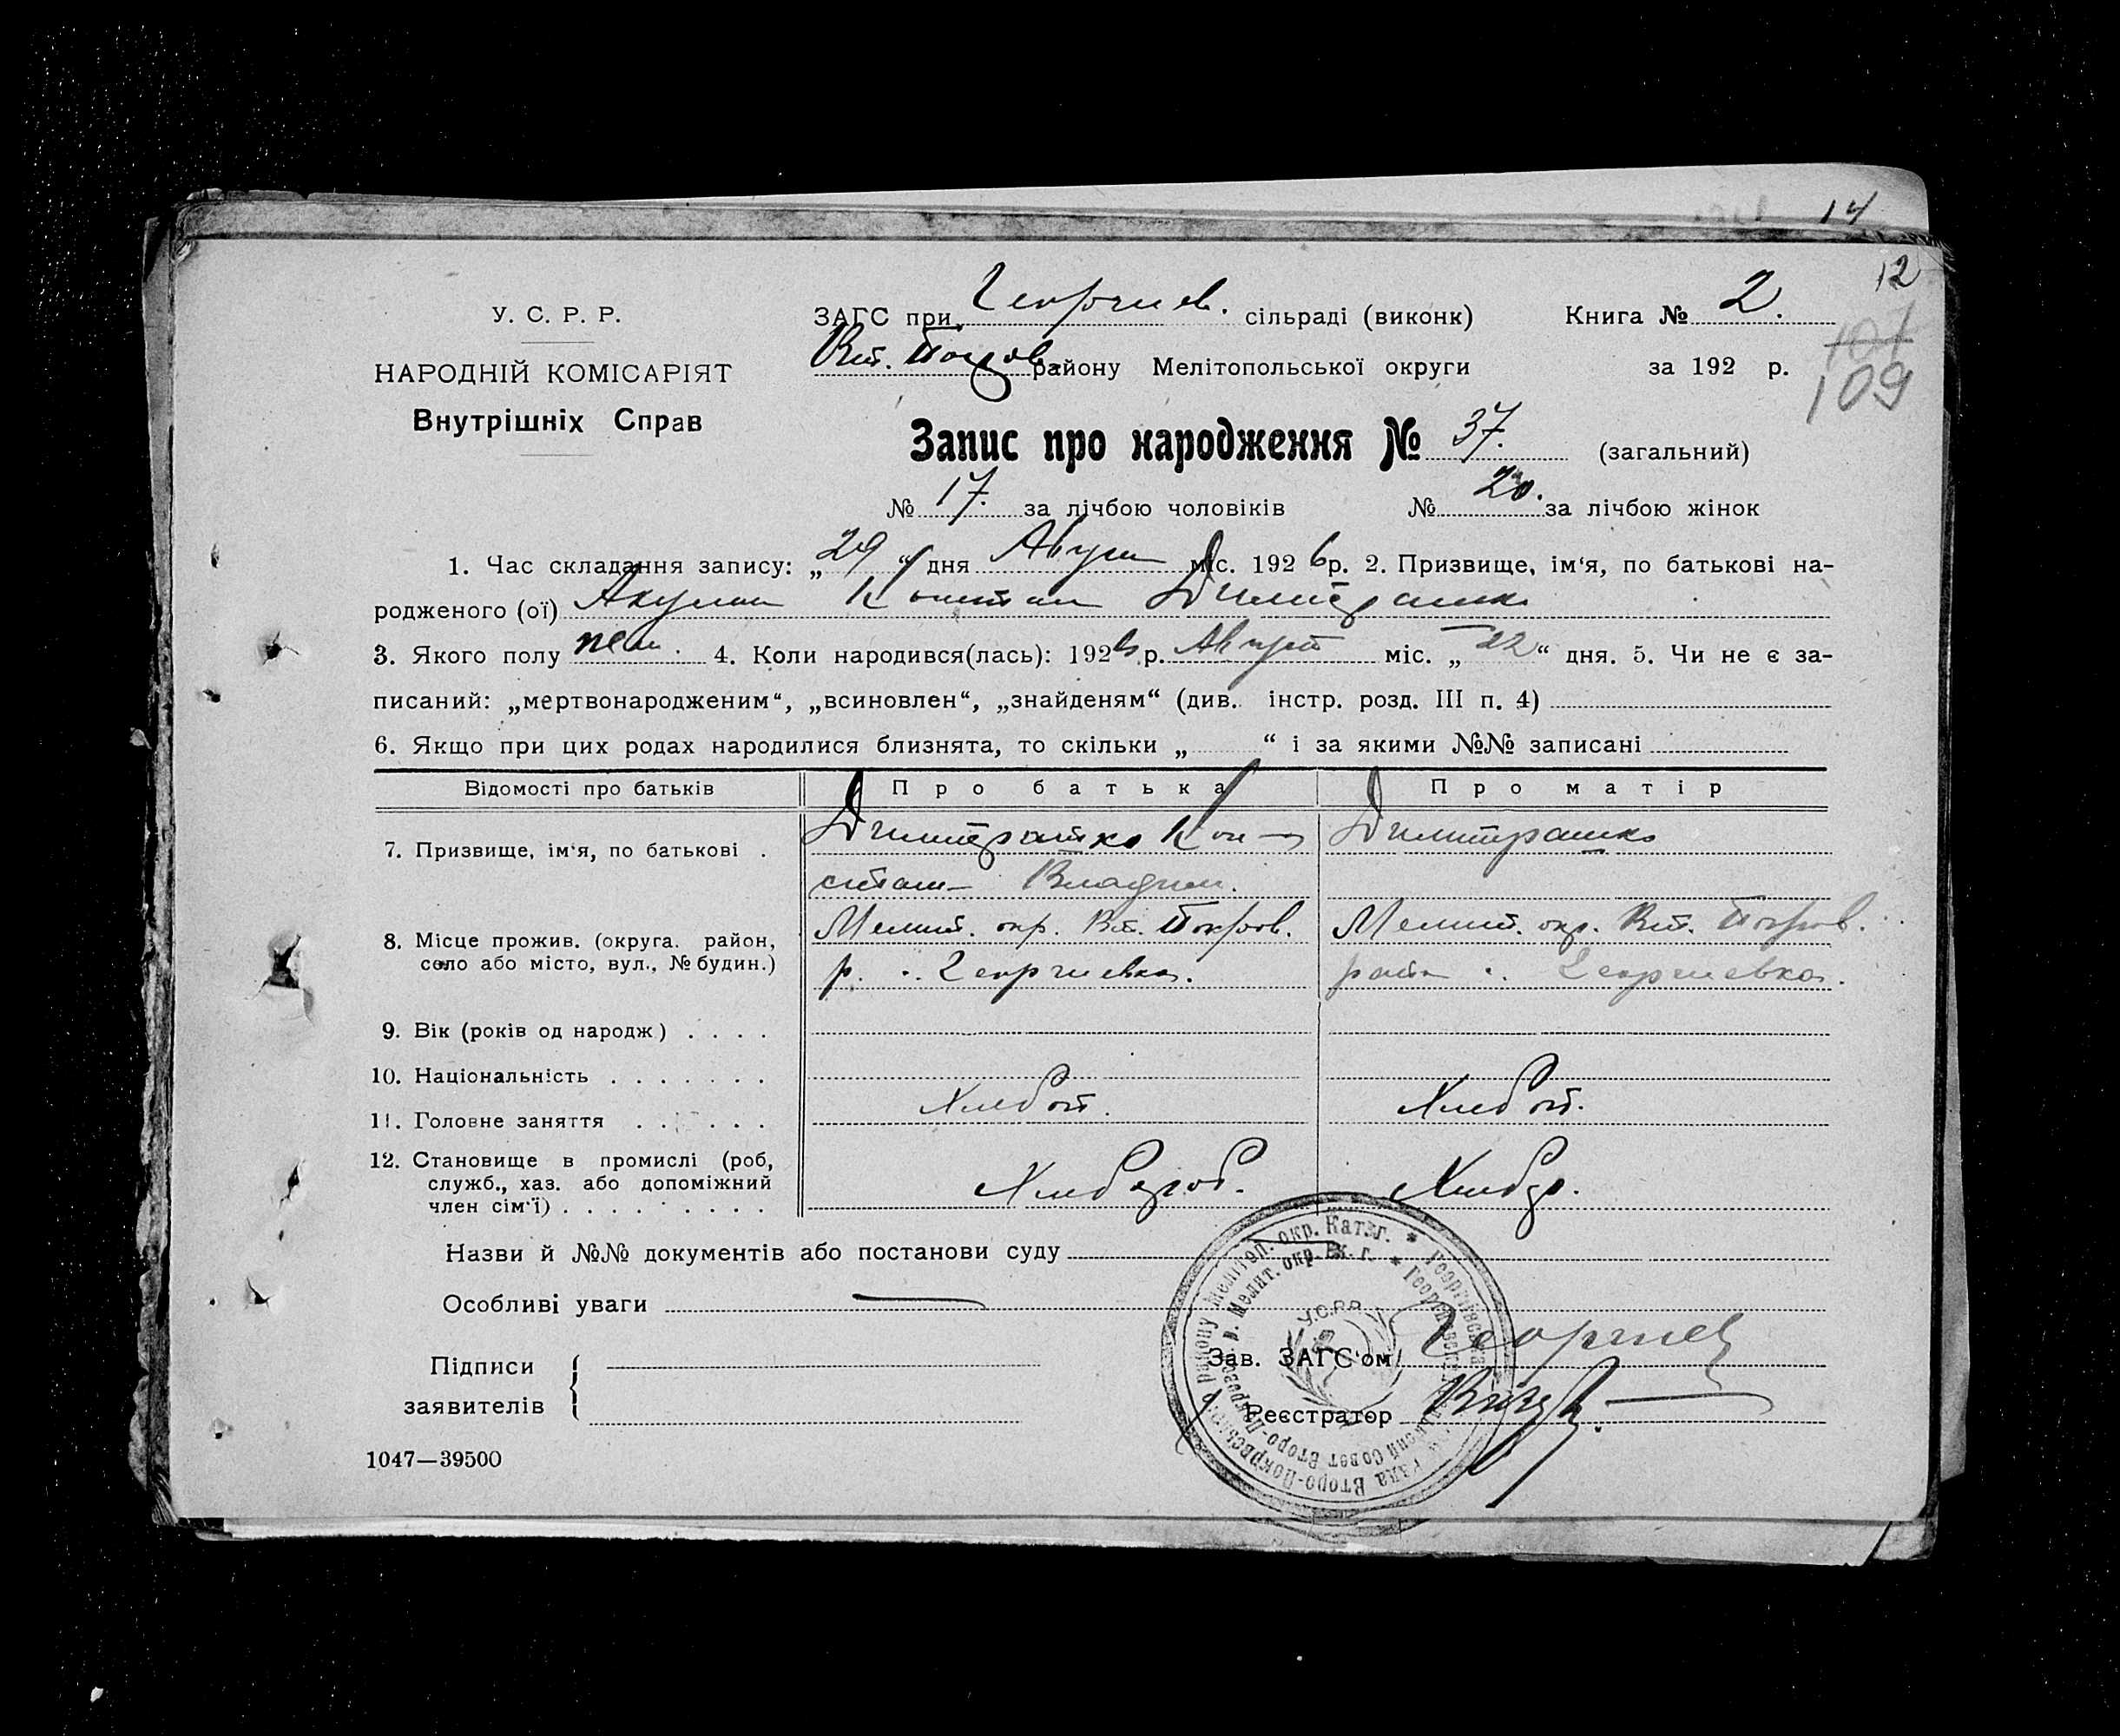 14
12
У. С. Р. Р.
НАРОДНІЙ КОМІСАРІЯТ
Внутрішніх Справ
ЗАГС при Георгиев. сільраді (виконк)
Книга № 2.
Вт. Покров. району Мелітопольської округи
за 192 р.
107
109
Запис про народження № 37. (загальний)
№ 17. за лічбою чоловіків № 20. за лічбою жінок
1. Час складання запису: „29“ дня Август міс. 1926 р. 2. Призвище, ім‘я, по батькові на-
родженого (ої) Димитрашко
3. Якого полу 4. Коли народився(лась): 1926 р. Август міс. „22“ дня. 5. Чи не є за-
писаний: „мертвонародженим“, „всиновлен“, „знайденям“ (див. інстр. розд. III п. 4)
6. Якщо при цих родах народилися близнята, то скільки „ “ і за якими №№ записані
Відомості про батьків
Про батька
Про матір
7. Призвище, ім‘я, по батькові .
Димитрашко Кон-
стан- Владим.
Димитрашко
8. Місце прожив. (округа. район,
село або місто, вул., № будин.)
Мелит. окр. Вт. Покров.
р. с. Георгиевка.
Мелит. окр. Вт. Покров.
район с. Георгиевка.
9. Вік (років од народж) . . . .
10. Національність . . . . . . .
11. Головне заняття . . . . . .
Хлебоп.
Хлебоп.
12. Становище в промислі (роб,
служб., хаз. або допоміжний
член сім‘ї) . . . . . . . . .
Хлебороб.
Назви й №№ документів або постанови суду
Особливі уваги
Підписи
заявителів
Зав. ЗАГС‘ом
Реєстратор
У.С.Р.Р.
1047—39500